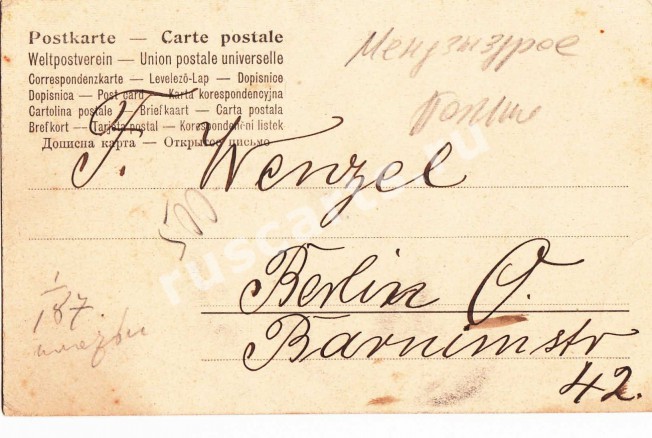 Postkarte — Carte postale
Weltpostverein — Union postale universelle
Correspondenzkarte — Levelezö-Lap — Dopisnice
Dopisnica — Post card — Karta korespondencyjna
Cartolina postale — Briefkaart — Carta postala
Brefkort — Tarjeta postal — Korespondenční listek
Дописна карта — Открытое письмо
F. Wenzel
500
Berlin O.
Barnimstr
42.
1/187.
ruscarte.ru